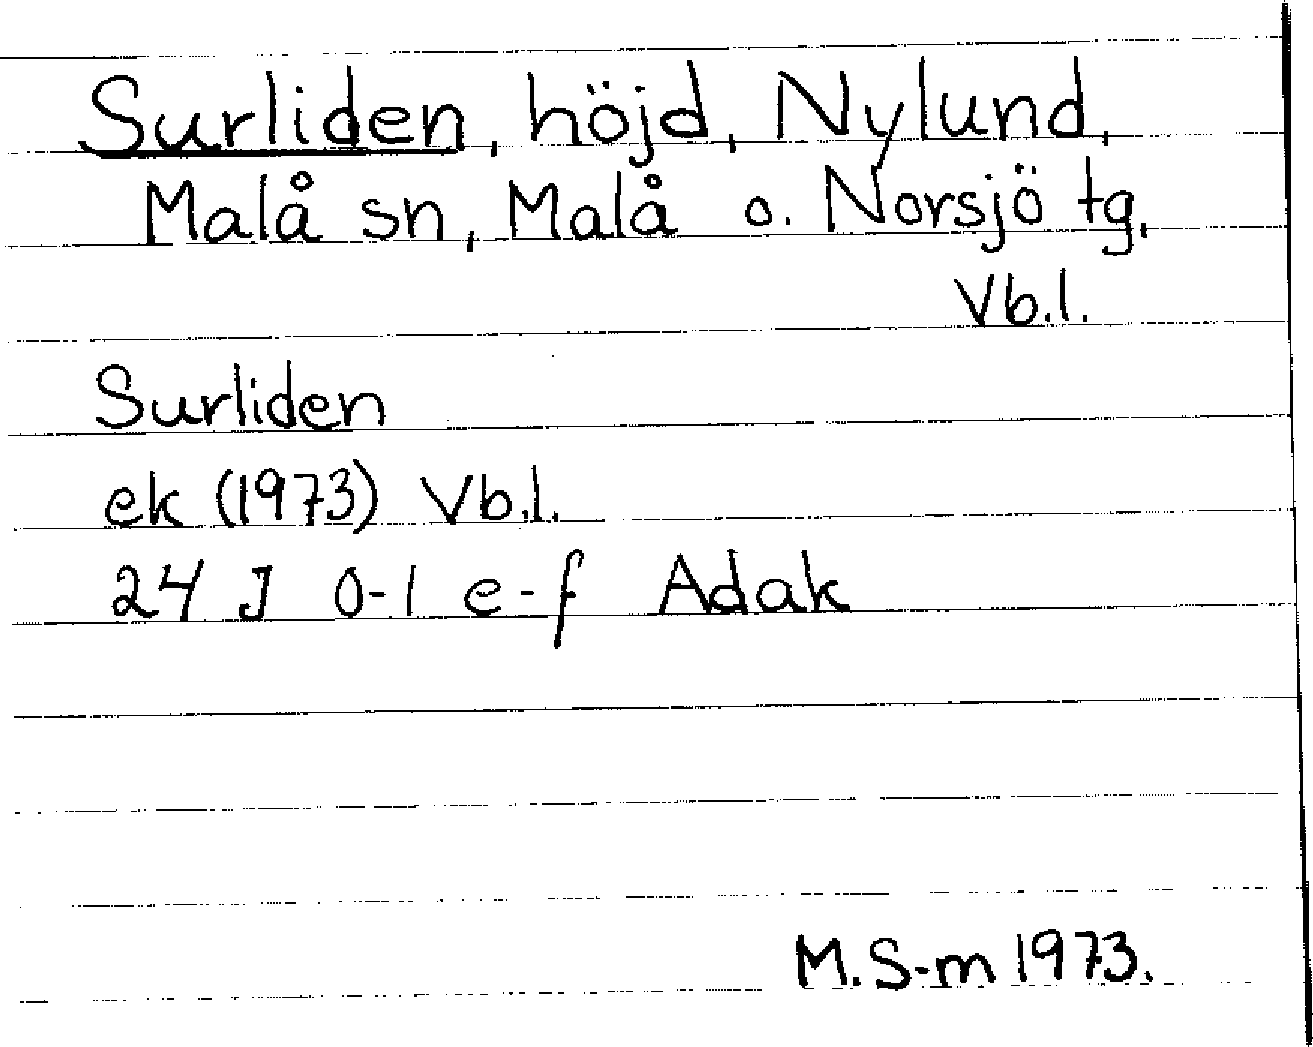 Surliden, höjd, Nylund,
Malå sn, Malå o. Norsjö tg,
Vb.l.
Surliden
ek (1973) Vb.l.
24 J 0-1 e-f Adak
M.S-m 1973.